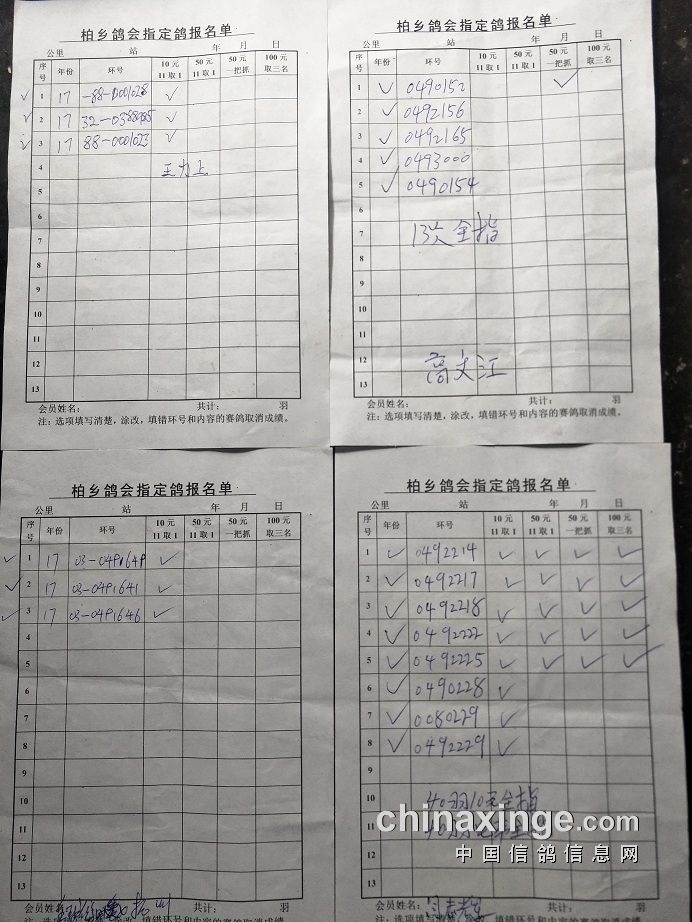 柏乡鸽会指定鸽报名单
公里 站 年 月 日
序号 年份 环号 10元 11取1 50元 11取1 50元 一把抓 100元 取三名
1 17 -88-0001028 ✓
2 17 32-0388985 ✓
3 17 88-0001023 ✓
4 王力上
5
6
7
8
9
10
11
12
13
会员姓名: 共计: 羽
注:选项填写清楚,涂改,填错环号和内容的赛鸽取消成绩。
柏乡鸽会指定鸽报名单
公里 站 年 月 日
序号 年份 环号 10元 11取1 50元 11取1 50元 一把抓 100元 取三名
1 ✓ 0490152 ✓
2 ✓ 0492156
3 ✓ 0492165
4 ✓ 0493000
5 ✓ 0490154
6
7 全指
8
9
10
11
12 高文江
13
会员姓名: 共计: 羽
注:选项填写清楚,涂改,填错环号和内容的赛鸽取消成绩。
柏乡鸽会指定鸽报名单
公里 站 年 月 日
序号 年份 环号 10元 11取1 50元 11取1 50元 一把抓 100元 取三名
1 17 03-0491649 ✓
2 17 03-0491641 ✓
3 17 03-0491646 ✓
4
5
6
7
8
9
10
11
12
13
会员姓名: 共计: 羽
填错环号和内容的赛鸽取消成绩。
柏乡鸽会指定鸽报名单
公里 站 年 月 日
序号 年份 环号 10元 11取1 50元 11取1 50元 一把抓 100元 取三名
1 ✓ 0492214 ✓ ✓ ✓ ✓
2 ✓ 0492217 ✓ ✓ ✓ ✓
3 ✓ 0492218 ✓ ✓ ✓ ✓
4 ✓ 0492222 ✓ ✓ ✓ ✓
5 ✓ 0492225 ✓ ✓ ✓ ✓
6 ✓ 0490228 ✓
7 ✓ 0080229 ✓
8 ✓ 0492229 ✓
9
10 40羽10元全指
11
12
13
chinaxinge.com
中国信鸽信息网
会员姓名: 共计: 羽
填错环号和内容的赛鸽取消成绩。